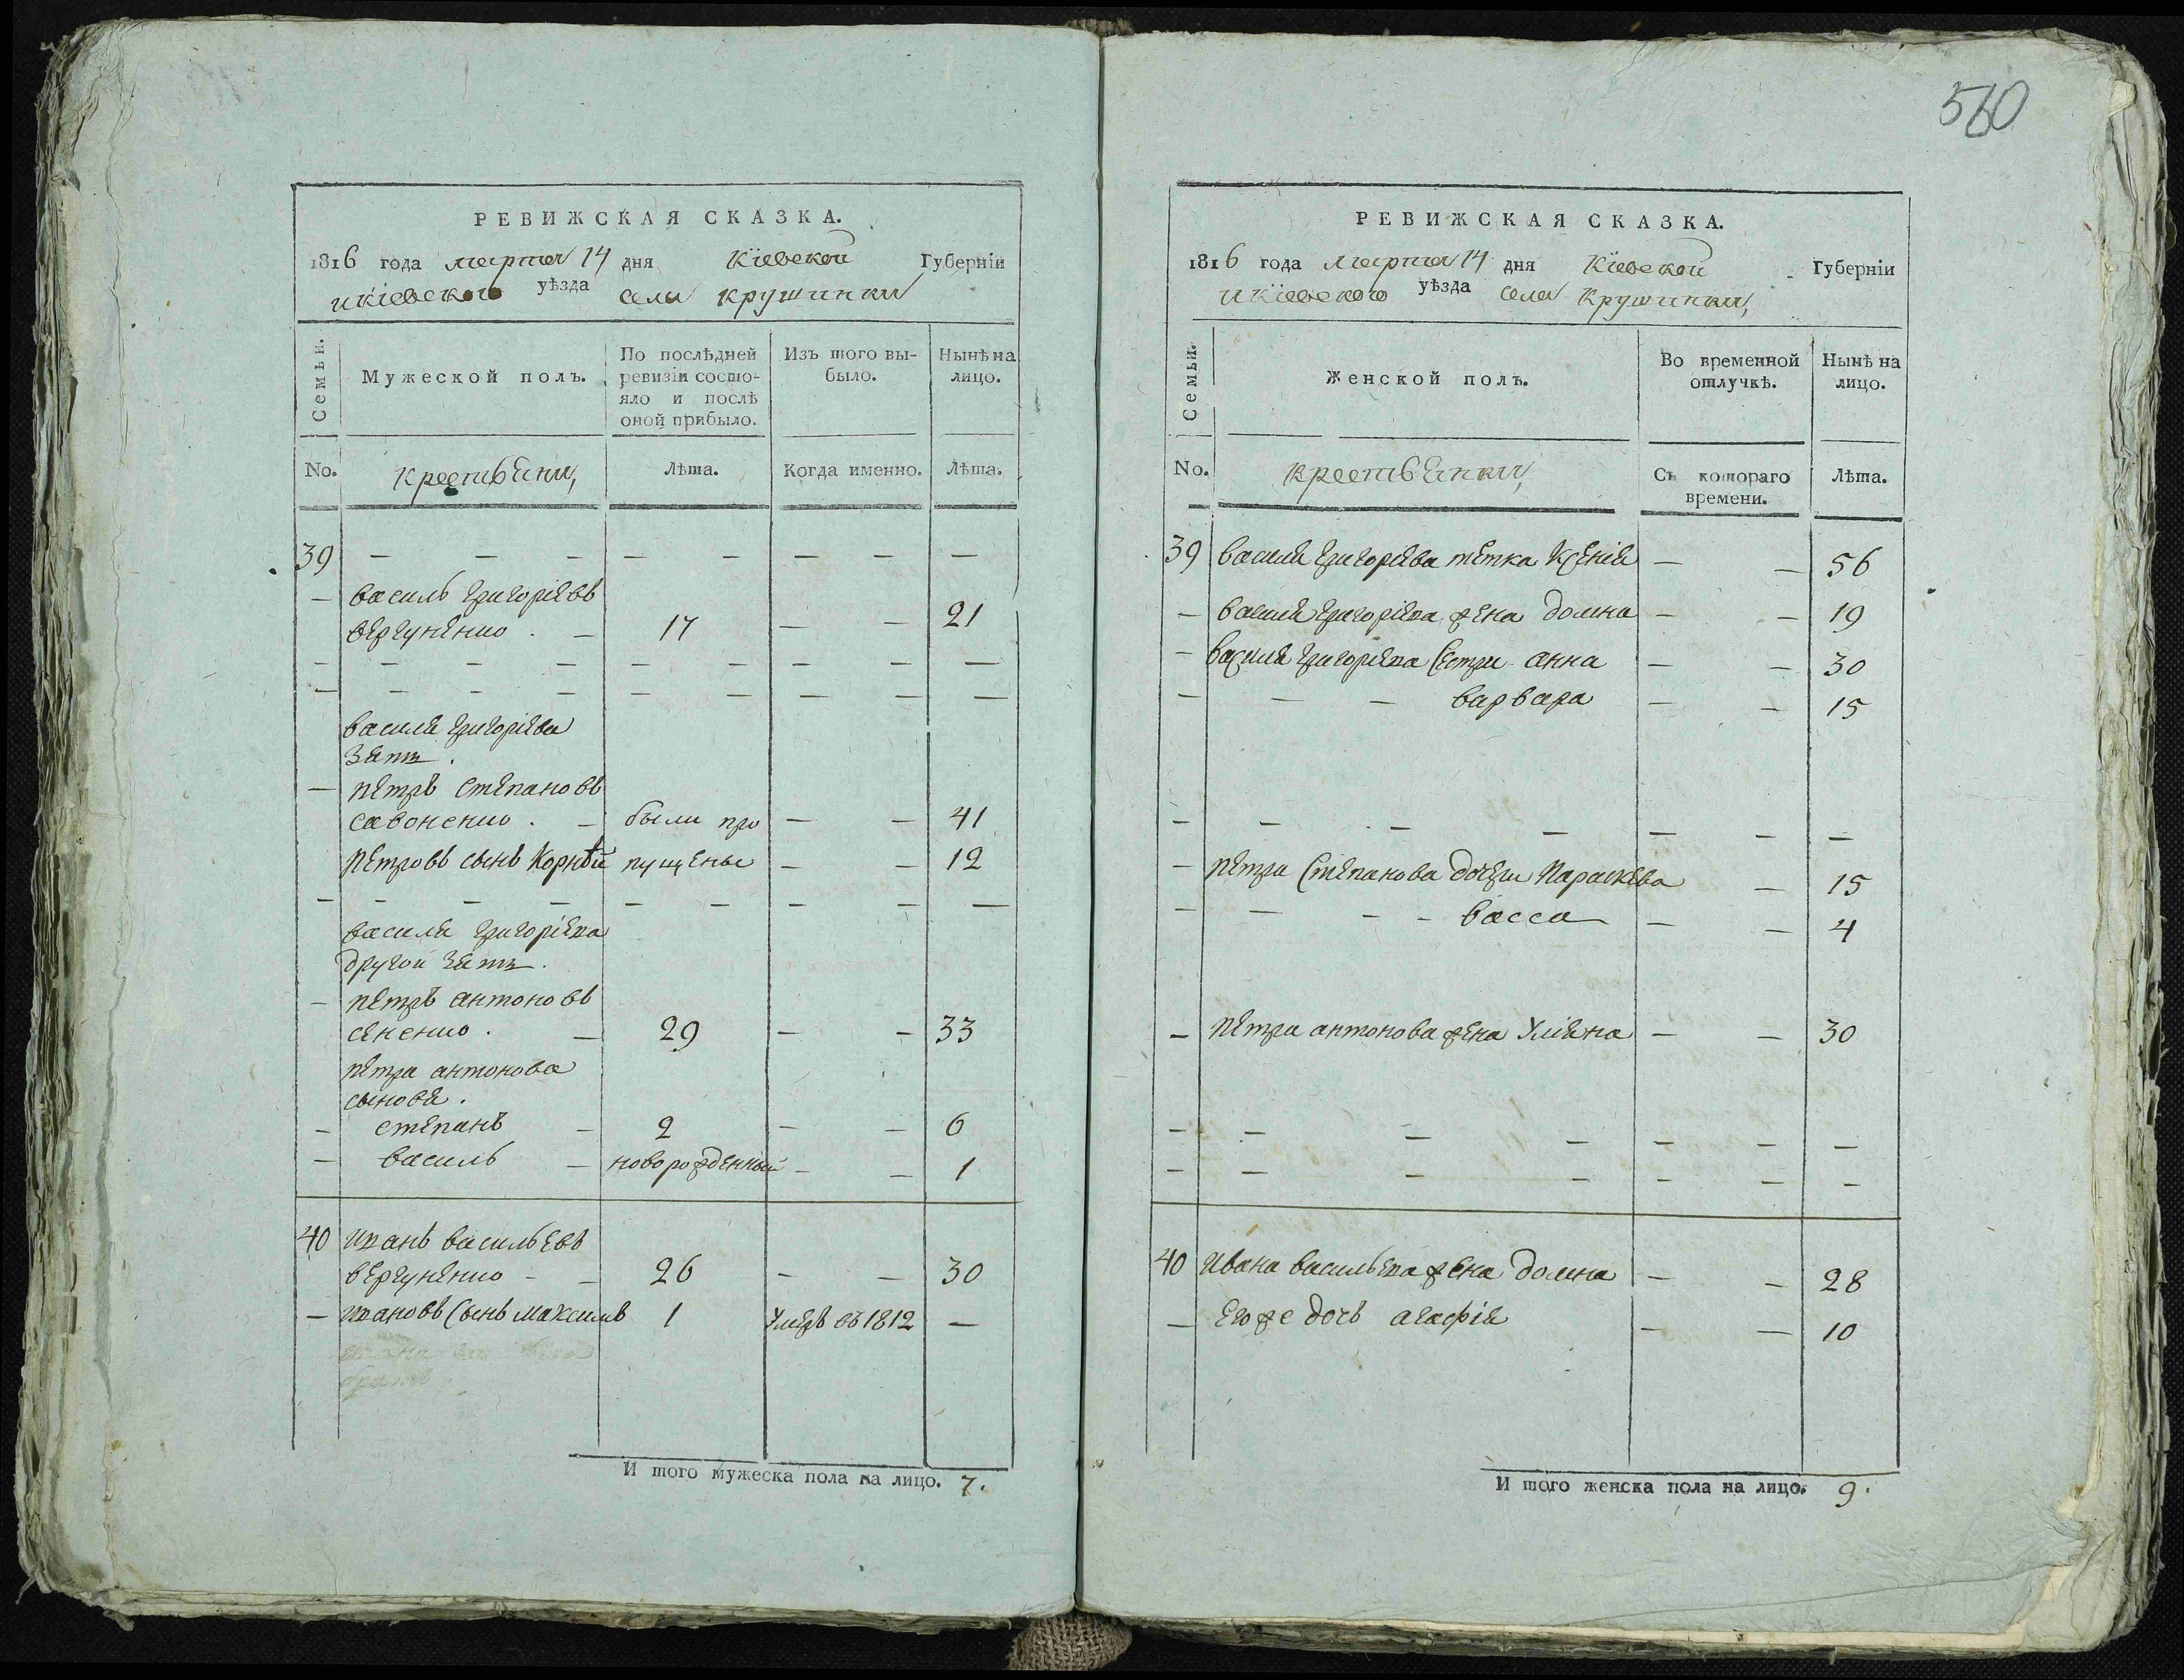 РЕВИЖСКАЯ СКАЗКА.
1816 года марта 14 дня Кіевской Губерніи
и кіевского уѣзда села Крушинки
Семьи.
Мужеской полъ.
По послѣдней
ревизіи состо-
яло и послѣ
оной прибыло.
Изъ того вы-
было.
Нынѣ на
лицо.
No.
крестьяни,
Лѣта.
Когда именно.
Лѣта.
39 — — — — — — — —
— василь григоріевъ
вергуненко . — 17 — — 21
— — — — — — — — —
— — — — — — — — —
василя григоріева
зять .
— петръ степановъ
савоненко . — были про — — 41
петровъ сынъ Корнѣй пущены — — 12
— — — — — — — — —
василя григоріева
другои зять .
— петръ антоновъ
сененко . — 29 — — 33
петра антонова
сыновя .
— степанъ — 2 — — 6
— василь — новорожденный — — 1
40 иванъ васильевъ
вергуненко — — 26 — — 30
— ивановъ сынъ максимъ 1 умеръ въ 1812 —
И того мужеска пола на лицо. 7.
560
РЕВИЖСКАЯ СКАЗКА.
1816 года марта 14 дня Кіевской Губерніи
и кіевского уѣзда села Крушинки,
Семьи.
Женской полъ.
Во временной
отлучкѣ.
Нынѣ на
лицо.
No.
крестьянки,
Съ котораго
времени.
Лѣта.
39 василя григоріева тетка Ксенія — — 56
— василя григоріева жена домна — — 19
— василя григоріева сестри анна — — 30
— — — варвара — — 15
— — — — — — —
— петра степанова дочери Параскева — 15
— — — — васса — — 4
— петра антонова жена Уліяна — — 30
— — — — — — —
— — — — — — —
40 ивана васильева жена домна — — 28
— его же дочь агафія — — 10
И того женска пола на лицо. 9.